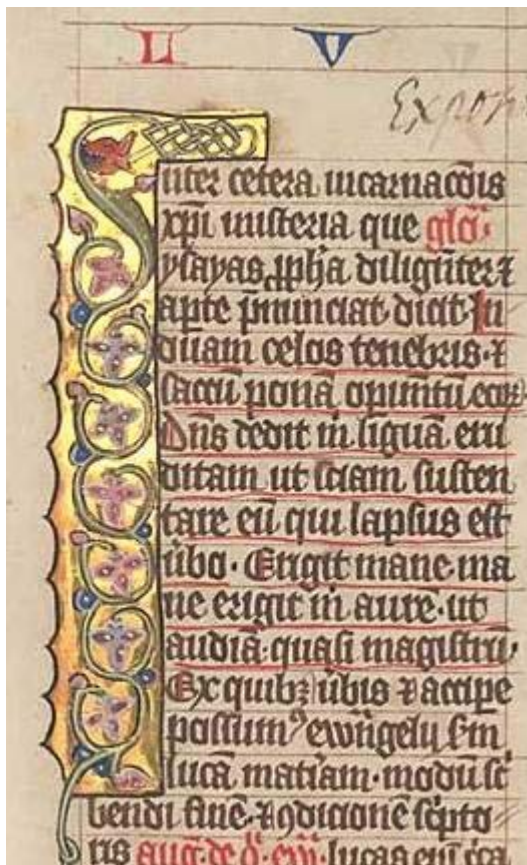 L V
Expon
Inter cetera incarnacõis
xp̃i misteria que glo.
ysayas ꝓph̃a diligẽter ⁊
aperte p̃nunciat dicit In
duam celos tenebris. ⁊
saccũ ponã opimẽtũ eoꝝ.
Dñs dedit m̃ liguã eru
ditam ut sciam susten
tare eũ qui lapsus est
ũbo. Erigit mane ma
ne erigit m̃ aurẽ. ut
audiã quasi magistrũ.
Ex quibꝫ ũbis ⁊ accipe
possumꝰ ewãgelij s̃m
lucã mat̃iam. modũ sc̃
bendi finẽ. ⁊ ꝯdicionẽ sc̃pto
ris aug. de q̃. ew̃. lucas